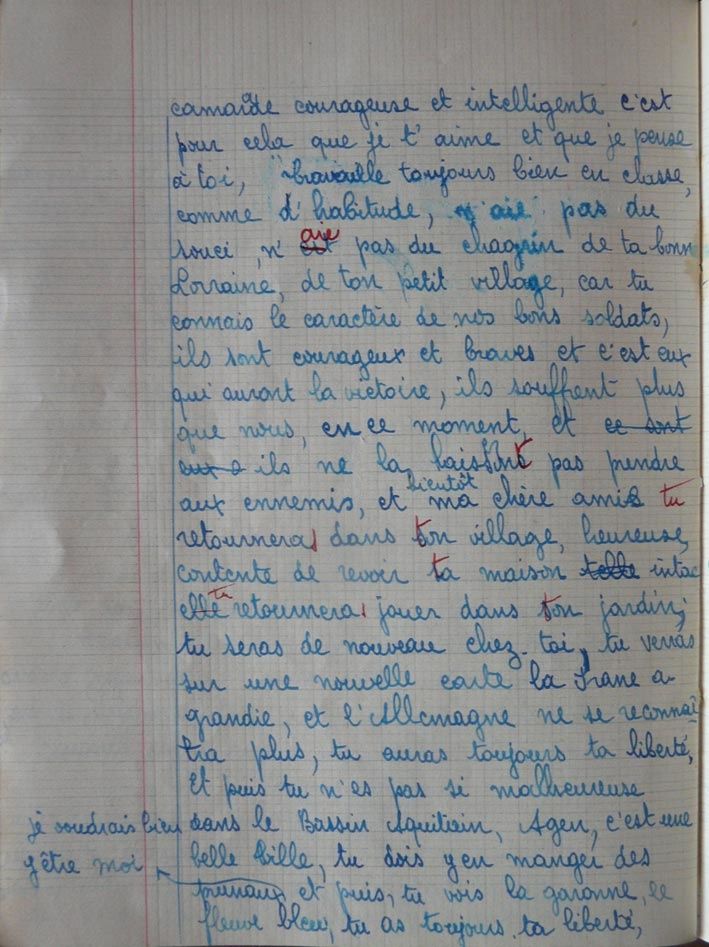 camarade courageuse et intelligente c'est
pour cela que je t'aime et que je pense
à toi, travaille toujours bien en classe,
comme d'habitude, n'aie pas du
aie
souci, n' est pas du chagrin de ta bonn
Lorraine, de ton petit village, car tu
connais le caractère de nos bons soldats,
ils sont courageux et braves et c'est eux
qui auront la victoire, ils souffrent plus
que nous, en ce moment, et ce sont
eux ils ne la laissent pas prendre
bientôt
aux ennemis, et ma chère amie tu
retourneras dans ton village, heureuse,
contente de revoir ta maison telle intac
tu
elle retourneras jouer dans ton jardin,
tu seras de nouveau chez toi, tu verras
sur une nouvelle carte la Frane a-
grandie, et l'Allemagne ne se reconnaî
tra plus, tu auras toujours ta liberté,
Et puis tu n'es pas si malheureuse
je voudrais bien dans le Bassin Aquitiain, Agen, c'est une
y être moi belle ville, tu dois y en manger des
prunaux et puis, tu vois la garonne, le
fleuve bleu, tu as toujours ta liberté,